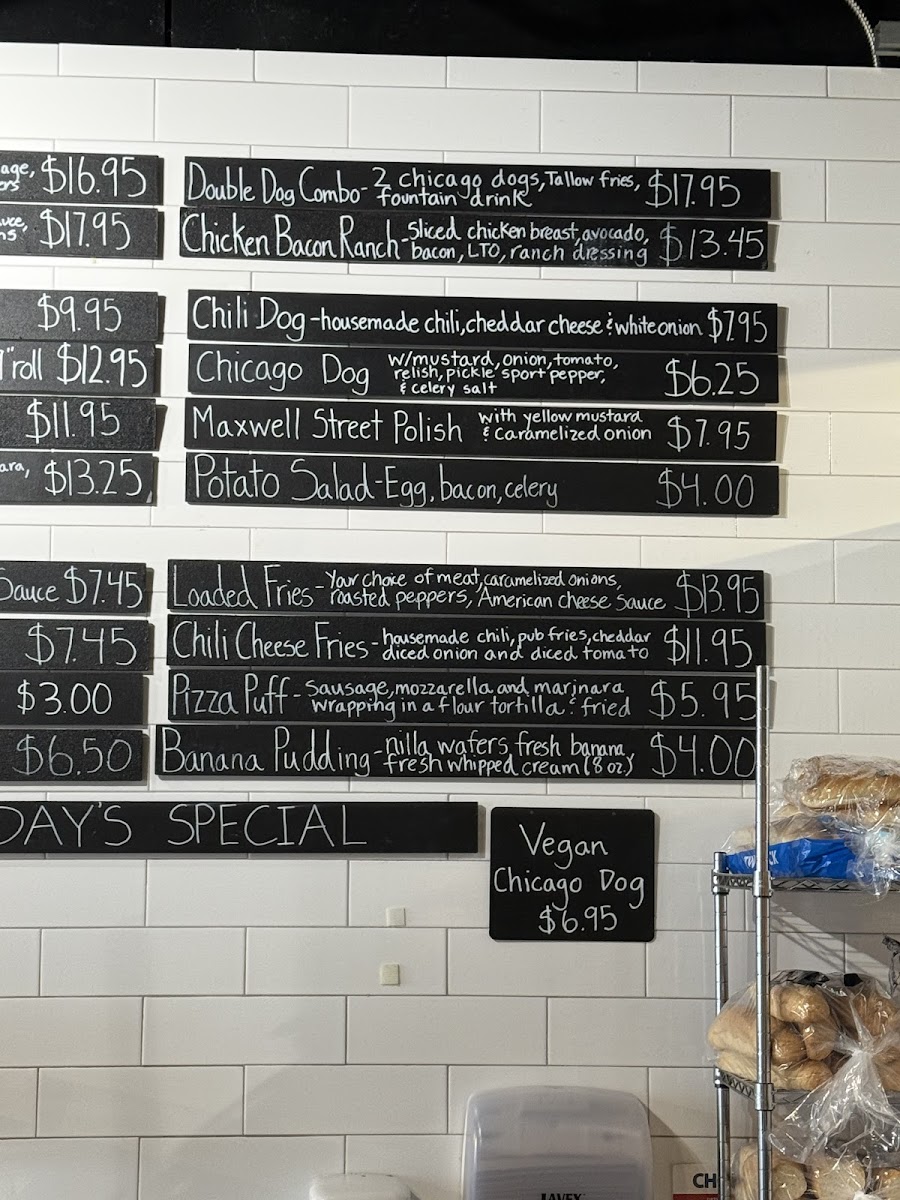 age, $16.95
ers
uce, $17.95
ns
$9.95
1" roll $12.95
$11.95
ara, $13.25
Sauce $7.45
$7.45
$3.00
$6.50
Double Dog Combo- 2 chicago dogs, Tallow fries, $17.95
fountain drink
Chicken Bacon Ranch- sliced chicken breast, avocado, $13.45
bacon, LTO, ranch dressing
Chili Dog - housemade chili, cheddar cheese & white onion $7.95
Chicago Dog w/mustard, onion, tomato, $6.25
relish, pickle sport pepper,
& celery salt
Maxwell Street Polish with yellow mustard $7.95
& Caramelized onion
Potato Salad - Egg, bacon, celery $4.00
Loaded Fries - Your choice of meat, caramelized onions, $13.95
roasted peppers, American cheese sauce
Chili Cheese Fries - housemade chili, pub fries, cheddar $11.95
diced onion and diced tomato
Pizza Puff - Sausage, mozzarella and marinara $5.95
wrapping in a flour tortilla & fried
Banana Pudding - nilla wafers, fresh banana, $4.00
fresh whipped cream (8 oz)
DAY'S SPECIAL
Vegan
Chicago Dog
$6.95
LAVEX
CH